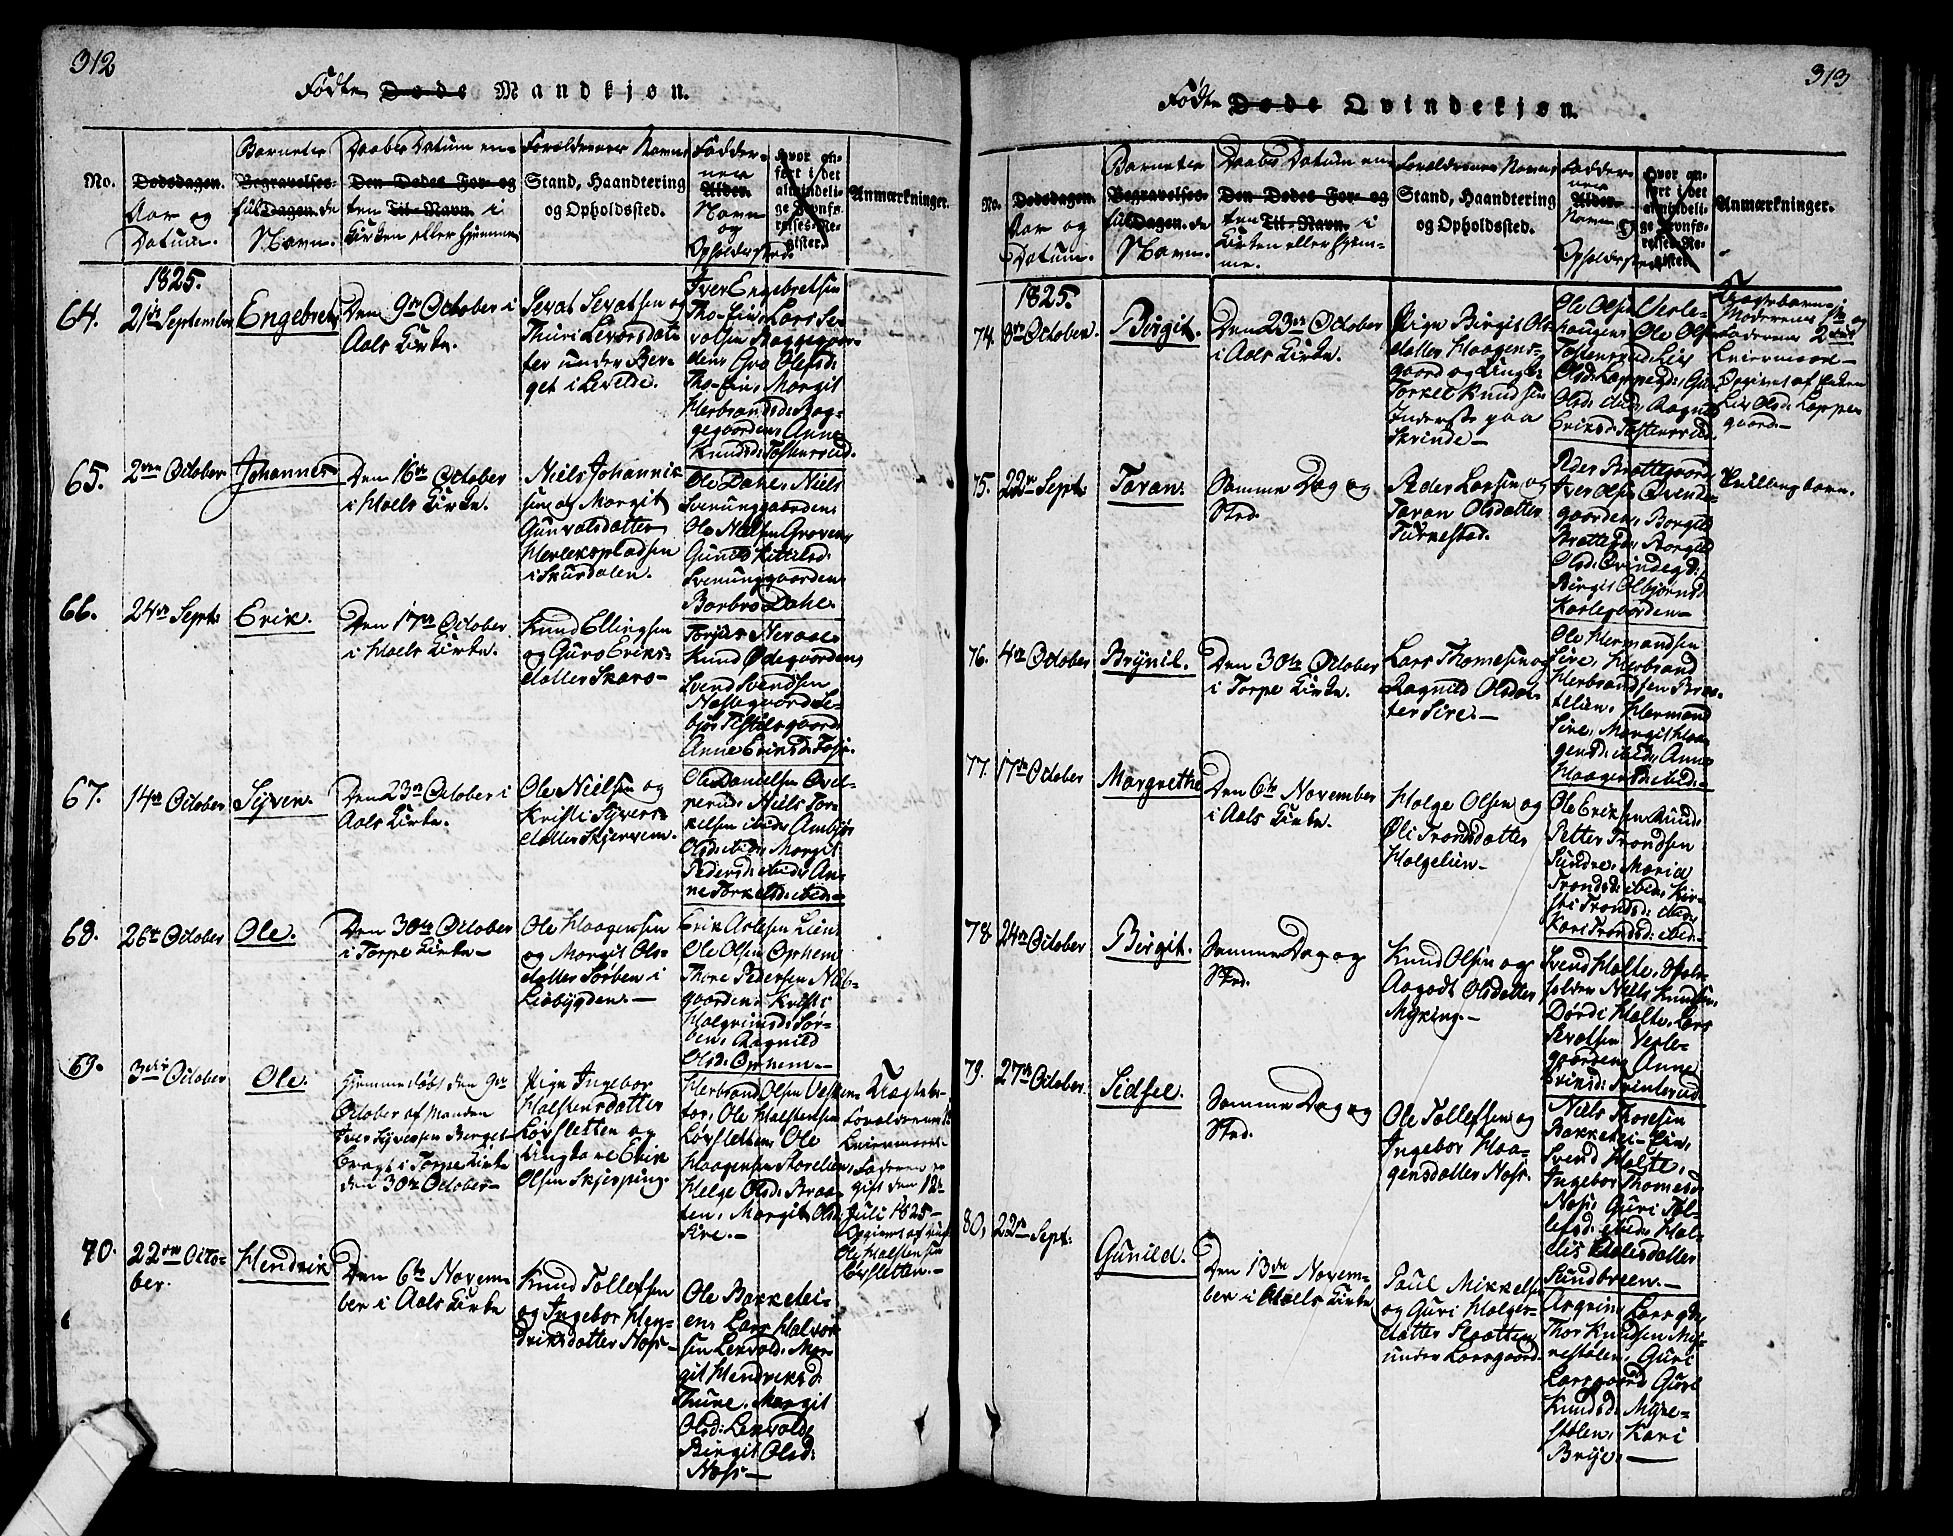 312
Fødte Døde Mandkjøn.
No.
Dødsdagen.
Aar og
Datum.
Barnets
Begravelses-
fulde Dagen.
Navn.
Daabs Datum en-
Den Dødes For- og
ten Til-Navn. i
Kirken eller hjemme
Forældrenes Navn
Stand, Haandtering
og Opholdssted.
Fadder-
nes
Alder.
Navn
og
Opholdssted.
Hvor an-
ført i det
almindeli-
ge Jevnfø-
relses-Re-
gister.
Anmærkninger.
1825.
64.
21de September
Engebret
Den 9de October i
Aols Kirke.
Sevat Sevatsen og
Thuri Levorsdat-
ter under Ber-
get i Leveldе.
Iver Engebretsen
Tho-fin, Lars Se-
vatsen Raggegaar-
den, Gro Olefsd:
Tho-fin, Margit
Herbrandsd: Rag-
gegaarden, Anne
Knudsd: Tostensrud.
65.
2den October
Johannes
Den 16de October
i Hoels Kirke.
Niels Johannis-
sen og Margit
Gunvatsdatter
Herlekspladsen
i Skurdalen.
Ole Dahl, Niels
Svenunggaarden,
Ole Nielsen Groven,
Gunild Kittilsd:
Svenunggaarden
Barbro Dahl.
66.
24de Sept:
Erik.
Den 17de October
i Hoels Kirke.
Knud Ellingsen
og Guro Eriks-
datter Skaro-
Torger Neraas
Knud Ødegaarden,
Svend Svendsen
Nossegaard, Se-
bjør Tostensgaard
Anne Eriksd: Toss.
67.
14de October
Syver.
Den 23de October i
Aols Kirke.
Ole Nielsen og
Kristi Syvers-
datter Skjervem.
Ole Danielsen Qvel-
prud, Niels Tor-
kelsen ibid, Ambjør
Olsd: ibid, Margit
Pedersd: ibid, An-
ne Torkelsd: ibid.-
68.
26de October
Ole.
Den 30te October
i Torpe Kirke-
Ole Haagensen
og Margit Ols-
datter Sørben i
Liobygden.-
Erik Asle­sen Lien
Ole Olsen Ophem
Thore Pedersen Nub-
gaarden, Kristi
Halgrimsd: Sør-
ben, Ragnild
Olsd: Ophem.-
69.
3die October
Ole.
Hjemmedøbt den 9de
October af Manden
Iver Syversen Berget
bragt i Torpe Kirke
den 30te October-
Pige Ingebor
Halstensdatter
Løvsletten og
Ungkarl Erik
Olsen Skjerping.
Herbrand Olsen Vesten-
tor, Ole Halstensen
Løvsletten, Ole
Haagensen Storelien,
Helge Olsd: Braa-
ten, Margit Olsd:
Sire.-
Uægte
Forældrenes 1ste
Leiermaal.
Faderen er
gift den 12te
Juli 1825-
Opgivet af
Ole Halstensen
Løvsletten.-
70.
22den Octo-
ber.
Hendrik
Den 6te Novem-
ber i Aals Kirke
Knud Tollefsen
og Ingebor Hen-
driksdatter Noss-
Ole Bakkehei-
en, Lars Halvor-
sen Lervold, Mar-
git Hendriksd:
Thune, Margit
Olsd: Lervold,
Birgit Olsd:
Noss-
313
Fødte Døde Qvindekjøn.
No.
Dødsdagen.
Aar og
Datum.
Barnets
Begravelses-
fulde Dagen.
Navn.
Daabs Datum en-
Den Dødes For- og
ten Til-Navn. i
Kirken eller hjem-
me.
Forældrenes Navn
Stand, Haandtering
og Opholdssted.
Fadder-
nes
Alder.
Navn og
Opholdssted.
Hvor an-
ført i det
almindeli-
ge Jevnfø-
relses-Re-
gister.
Anmærkninger.
1825.
74.
8de October.
Birgit.
Den 23de October
i Aols Kirke.
Pige Birgit Ols-
datter Haagens-
gaard og Ungk:
Torkel Knudsen
Inderst paa
Skrinde-
Ole Olsen Vesle-
haugen, Ole Olsen
Tostensrud, Liv
Olsd: Loppegd: Guri
Olsd: ibid, Ragne
Eriksd: Tostensrud
Uægte barn,
Moderens 1ste og
Faderens 2det
Leiermaal-
Opgivet af Enken
Liv Olsd: Loppe-
gaard.-
75.
22de Sept:
Taran.
Samme Dag og
Sted.
Peder Larsen og
Taran Olsdatter
Turkestad.
Peder Brattegaard
Iver Olsen Qvinde-
gaarden, Borgild
Brattegd: Borgild
Olsd: Qvindegd:
Birgit Olbjørnsd:
Karlsgaarden-
Tvillingbarn.
76.
4de October
Brynil.
Den 30te October
i Torpe Kirke.
Lars Thomesen og
Ragnild Olsdat-
ter Sire.-
Ole Hermandsen
Sire, Herbrand
Herbrandsen Braa-
telien, Hermand
Sire, Margit Haa-
gensd: ibid, Anne
Haagensd: ibid.-
77.
17de October
Margrethe
Den 6te November
i Aals Kirke.
Holge Olsen og
Øli Trondsdatter
Holgelien-
Ole Eriksen Rud,
Petter Trondsen
Sundre, Maria
Trondsd: ibid, Kir-
sti Trondsd: ibid,
Kari Trondsd: ibid-
78
24de October
Birgit.
Samme Dag og
Sted.
Knud Olsen og
Aagodt Olsdatter
Myking.-
Svend Holte,
Niels Knudsen,
Dørdi Holte, Lars
Sevatsen Vesle-
gaarden, Anne
Eriksd: Trenterud
79.
27de October.
Sidsel.
Samme Dag og
Sted.
Ole Tollefsen og
Ingebor Haa-
gensdatter Noss.
Niels Thoresen
Bakkehei-Ein,
Svend Holte,
Ingebor Thomesd:
Noss, Guri Tol-
lefsd: ibid, Hal-
dis Halisdatter
Sundbreen.-
80.
22de Sept:
Gunild.
Den 13de Novem-
ber i Hoels Kirke
Paul Mikkelsen
og Guri Holger-
datter Slaatten
under Larsgaard.
Asgrim Larsgd:
Thor Knudsen My-
restølen, Guri
Larsgaard, Guri
Knudsd: Myre-
stølen, Kari
Brye.-